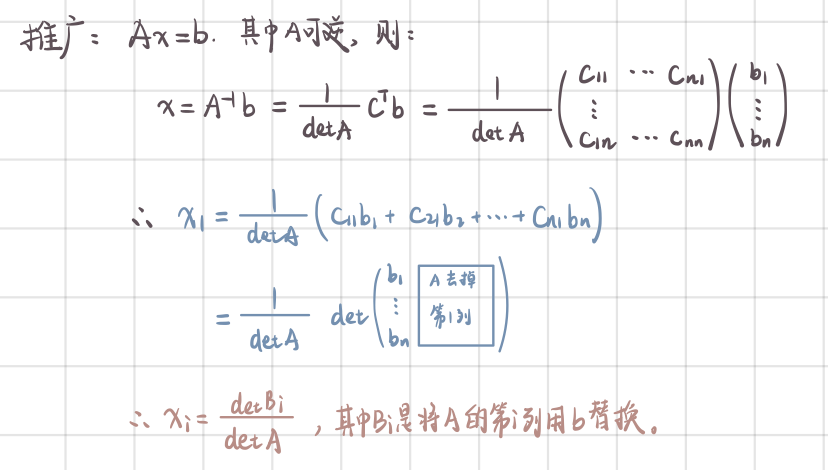 推广: Ax=b. 其中A可逆, 则:
x = A⁻¹b = \frac{1}{detA} Cᵀb = \frac{1}{det A} \begin{pmatrix} C_{11} & \cdots & C_{n1} \\ \vdots & & \\ C_{1n} & \cdots & C_{nn} \end{pmatrix} \begin{pmatrix} b_1 \\ \vdots \\ b_n \end{pmatrix}
∴ x_1 = \frac{1}{detA} (C_{11}b_1 + C_{21}b_2 + \cdots + C_{n1}b_n)
= \frac{1}{detA} det \begin{pmatrix} b_1 & \\ \vdots & \boxed{A去掉第1列} \\ b_n & \end{pmatrix}
∴ x_i = \frac{detB_i}{detA} , 其中B_i是将A的第i列用b替换。